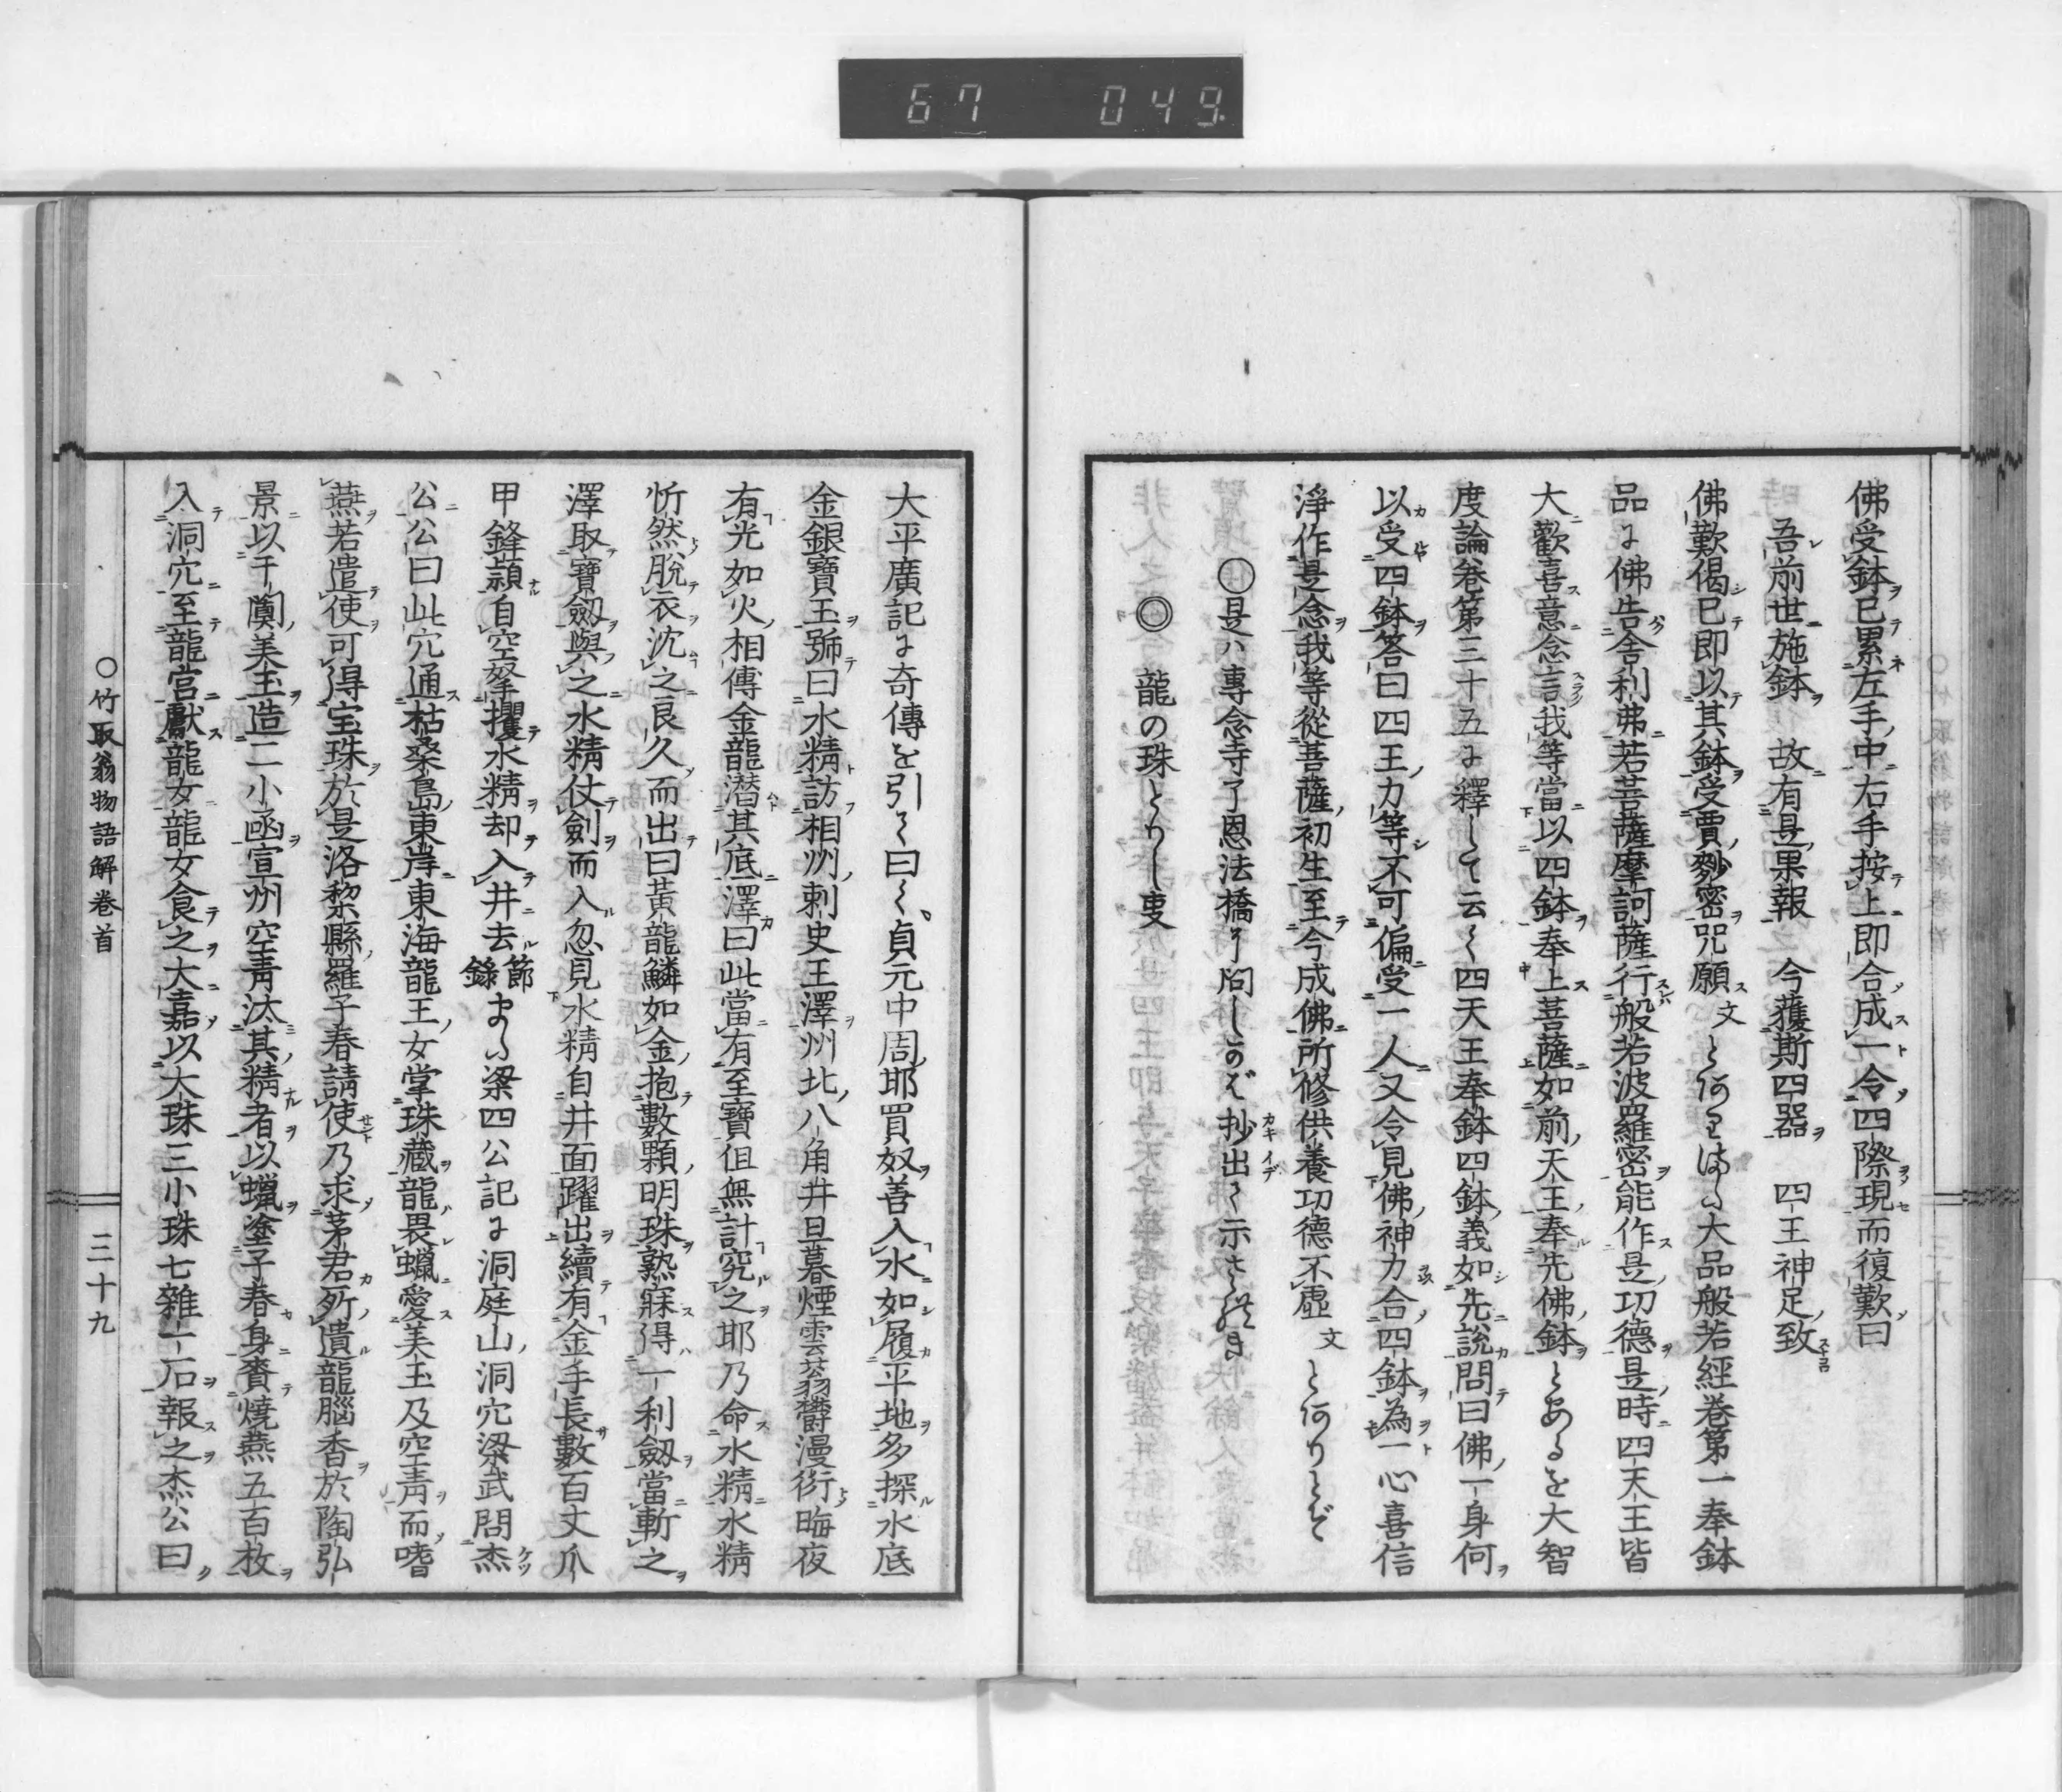 67 049
佛受鉢已累左手中右手按上即合成一令四際現而復歎曰
吾前世施鉢 故有是果報 今獲斯四器 四王神足致
佛歎偈已即以其鉢受賈麨密咒願文とありまた大品般若經卷第一奉鉢
品に佛告舍利弗若菩薩摩訶薩行般若波羅密能作是功德是時四天王皆
大歡喜意念言我等當以四鉢奉上菩薩如前天王奉先佛鉢とあるを大智
度論卷第三十五に釋して云く四天王奉鉢四鉢義如先說問曰佛一身何
以受四鉢答曰四王力等不可偏受一人又令見佛神力合四鉢為一心喜信
淨作是念我等從菩薩初生至今成佛所修供養功德不虛文とありとぞ
〇是ハ專念寺了恩法橋に問しかバ抄出て示されき
◎ 龍の珠とりし叓
大平廣記に奇傳を引て曰く貞元中周耶買奴善入水如履平地多探水底
金銀寶玉號曰水精訪相州刺史王澤州北八角井旦暮煙雲蓊欝漫衍晦夜
有光如火相傳金龍潛其底澤曰此當有至寶但無計究之耶乃命水精水精
忻然脫衣沈之良久而出曰黃龍鱗如金抱數顆明珠熟寐得一利劔當斬之
澤取寶劔與之水精仗劍而入忽見水精自井面躍出續有金手長數百丈爪
甲鋒穎自空拏攫水精却入井去節錄また梁四公記に洞庭山洞穴梁武問杰
公公曰此穴通枯桑島東岸東海龍王女掌珠藏龍畏蠟愛美玉及空靑而嗜
燕若遣使可得宝珠於是洛黎縣羅子春請使乃求茅君所遺龍腦香於陶弘
景以于闐美玉造二小函宣州空靑汰其精者以蠟塗子春身賷燒燕五百枚
入洞穴至龍宮獻龍女龍女食之大嘉以大珠三小珠七雜一石報之杰公曰
〇竹取翁物語解卷首 三十九